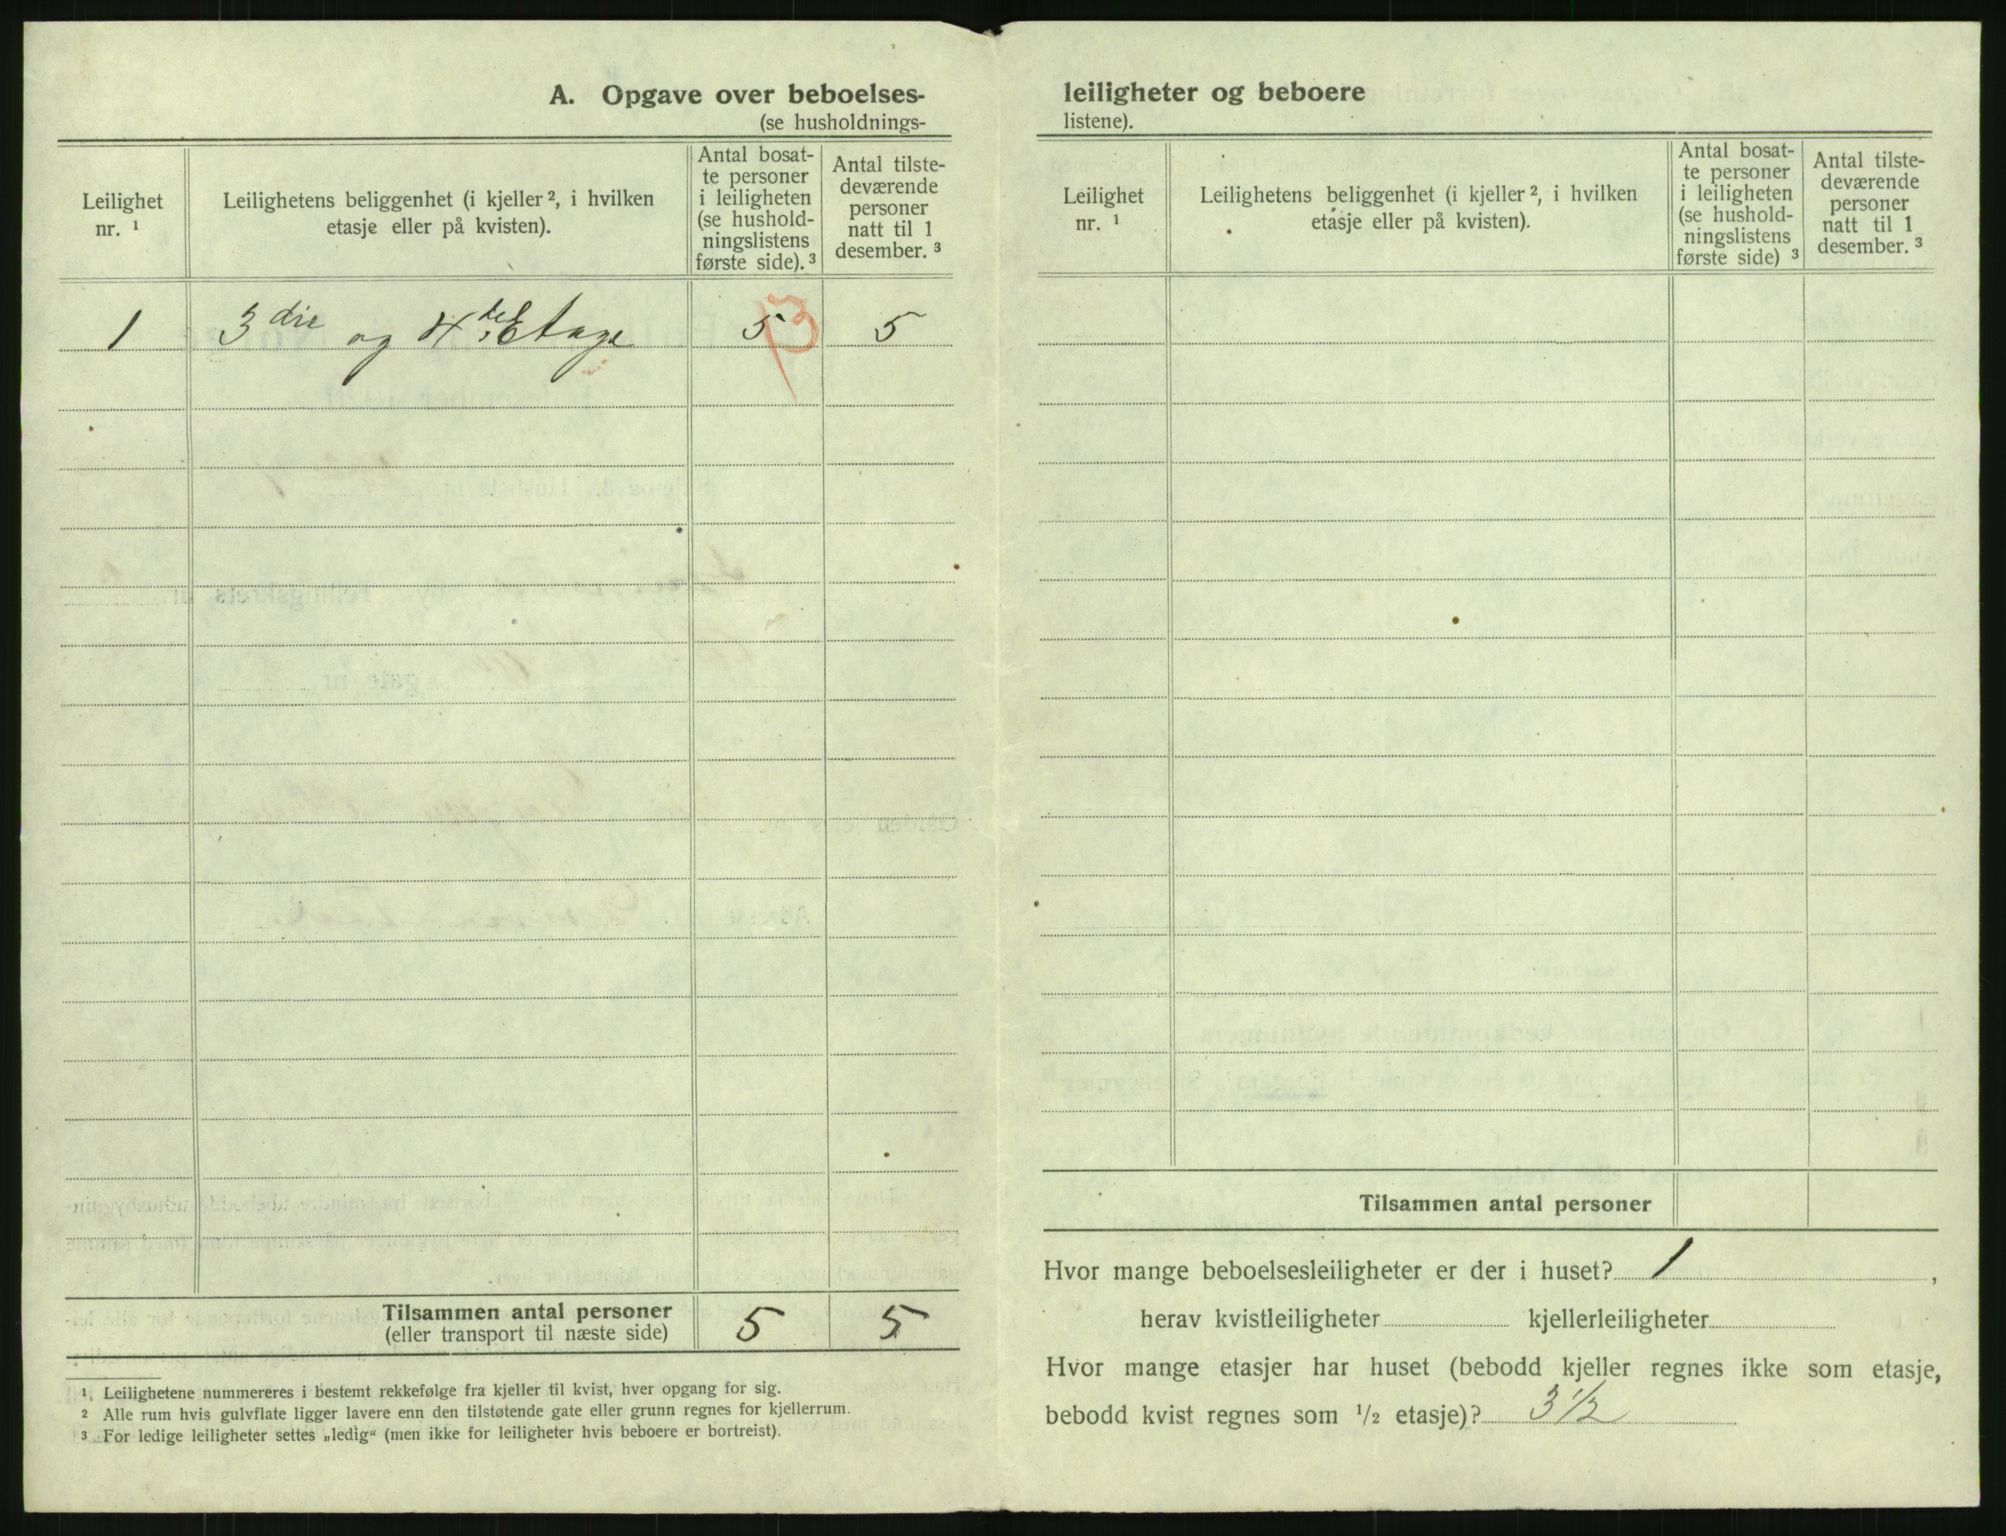 A. Opgave over beboelses-
(se husholdnings-
Leilighet
nr. ¹
Leilighetens beliggenhet (i kjeller ², i hvilken
etasje eller på kvisten).
Antal bosat-
te personer
i leiligheten
(se hushold-
ningslistens
første side). ³
Antal tilste-
deværende
personer
natt til 1
desember. ³
1 3die og 4de Etage 5 3 5
Tilsammen antal personer 5 5
(eller transport til næste side)
¹. Leilighetene nummereres i bestemt rekkefølge fra kjeller til kvist, hver opgang for sig.
² Alle rum hvis gulvflate ligger lavere enn den tilstøtende gate eller grunn regnes for kjellerrum.
³ For ledige leiligheter settes „ledig“ (men ikke for leiligheter hvis beboere er bortreist).
leiligheter og beboere
listene).
Leilighet
nr. ¹
Leilighetens beliggenhet (i kjeller ², i hvilken
etasje eller på kvisten).
Antal bosat-
te personer
i leiligheten
(se hushold-
ningslistens
første side) ³
Antal tilste-
deværende
personer
natt til 1
desember. ³
Tilsammen antal personer
Hvor mange beboelsesleiligheter er der i huset? 1 ,
herav kvistleiligheter kjellerleiligheter
Hvor mange etasjer har huset (bebodd kjeller regnes ikke som etasje,
bebodd kvist regnes som ½ etasje)? 3 ½